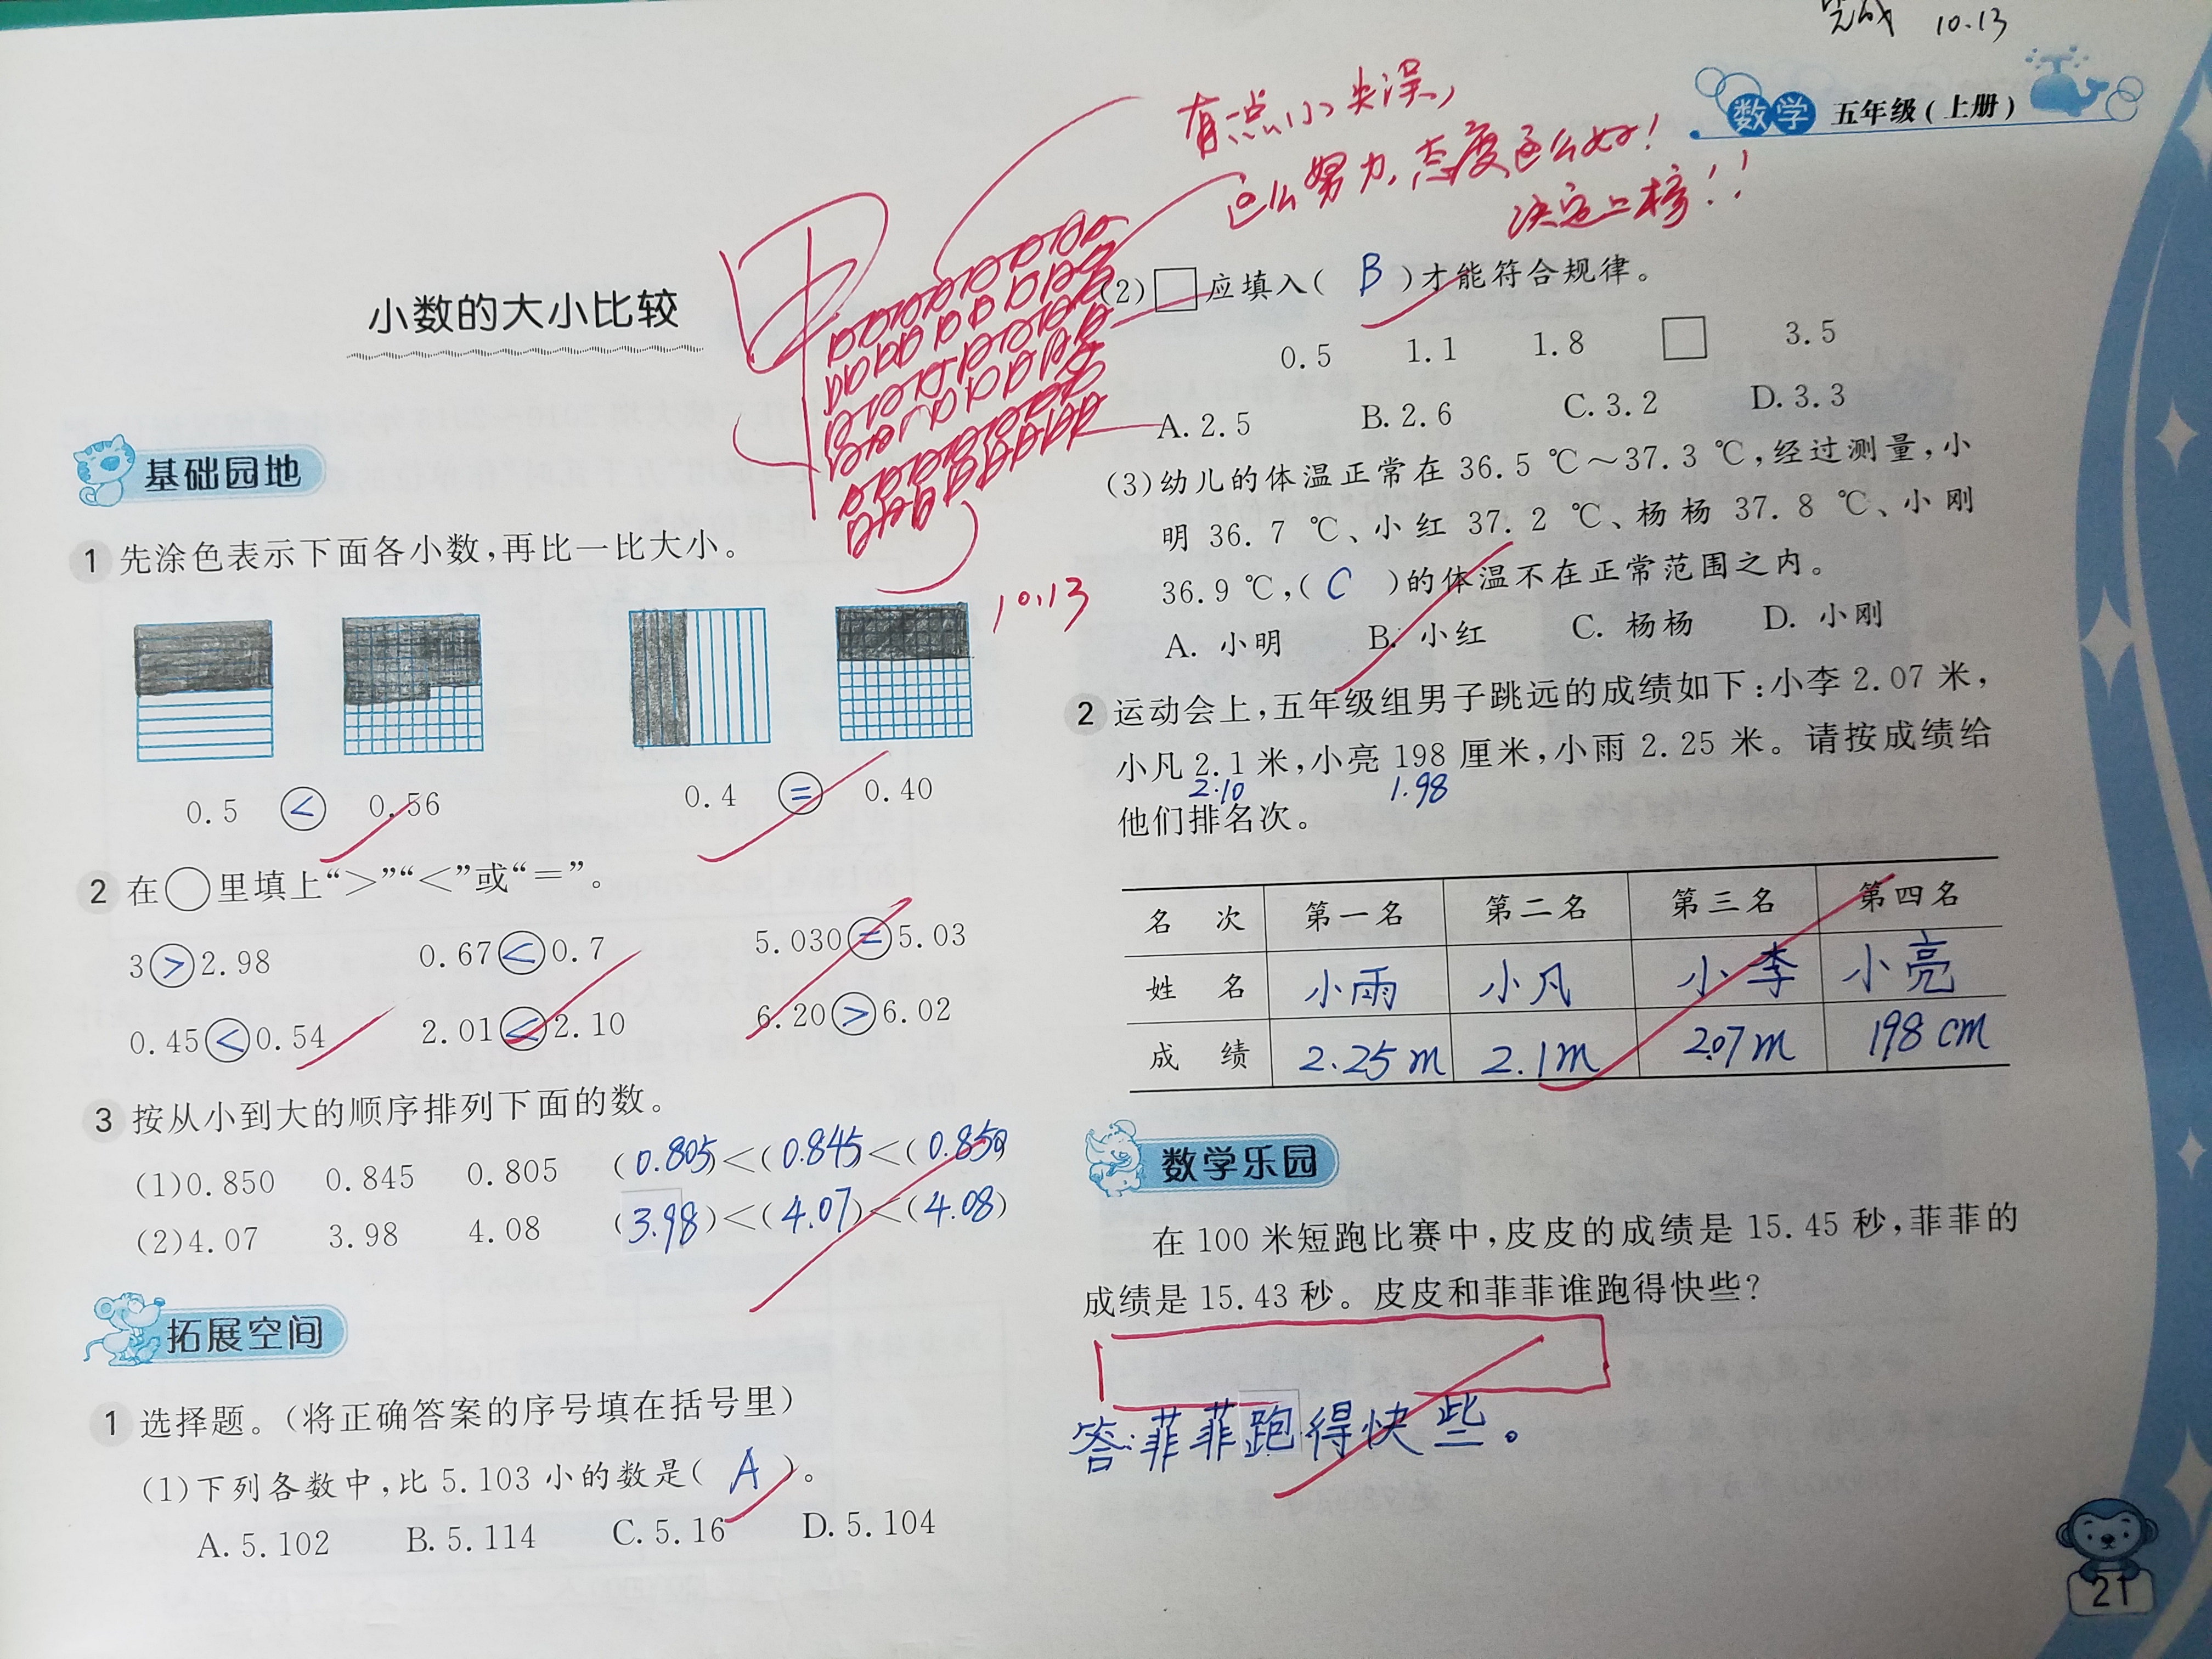 完成 10.13
数学 五年级(上册)
有点小失误,
这么努力,态度这么好!
决定上榜!!
小数的大小比较
甲
10.13
基础园地
1 先涂色表示下面各小数,再比一比大小。
0.5 < 0.56 0.4 = 0.40
2 在○里填上“>”“<”或“=”。
3>2.98 0.67<0.7 5.030=5.03
0.45<0.54 2.01<2.10 6.20>6.02
3 按从小到大的顺序排列下面的数。
(1)0.850 0.845 0.805 (0.805)<(0.845)<(0.850)
(2)4.07 3.98 4.08 (3.98)<(4.07)<(4.08)
拓展空间
1 选择题。(将正确答案的序号填在括号里)
(1)下列各数中,比 5.103 小的数是( A )。
A. 5.102 B. 5.114 C. 5.16 D. 5.104
(2)□应填入( B )才能符合规律。
0.5 1.1 1.8 □ 3.5
A. 2.5 B. 2.6 C. 3.2 D. 3.3
(3)幼儿的体温正常在 36.5 ℃~37.3 ℃,经过测量,小
明 36.7 ℃、小红 37.2 ℃、杨杨 37.8 ℃、小刚
36.9 ℃,( C )的体温不在正常范围之内。
A. 小明 B. 小红 C. 杨杨 D. 小刚
2 运动会上,五年级组男子跳远的成绩如下:小李 2.07 米,
小凡 2.1 米,小亮 198 厘米,小雨 2.25 米。请按成绩给
2.10 1.98
他们排名次。
名次 第一名 第二名 第三名 第四名
姓名 小雨 小凡 小李 小亮
成绩 2.25m 2.1m 2.07m 198cm
数学乐园
在 100 米短跑比赛中,皮皮的成绩是 15.45 秒,菲菲的
成绩是 15.43 秒。皮皮和菲菲谁跑得快些?
答:菲菲跑得快些。
21